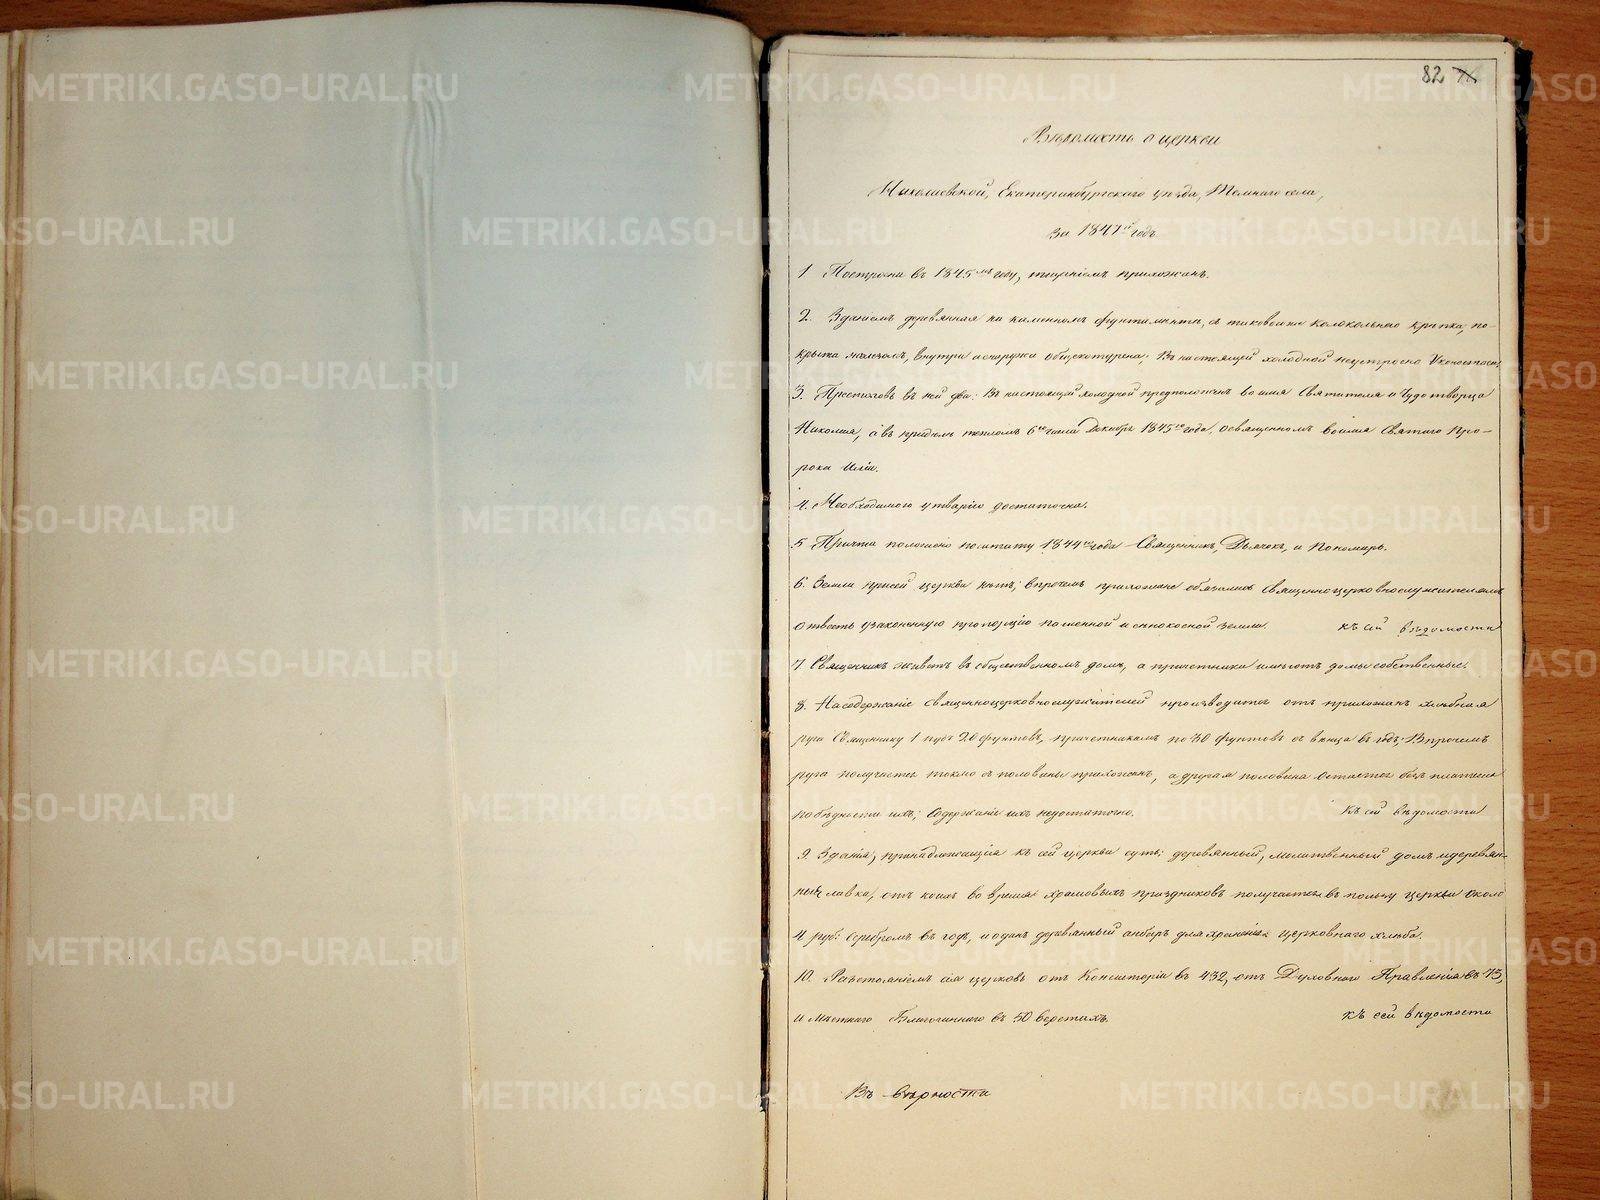 82
Вѣдомость о церкви
Николаевской, Екатеринбургскаго уѣзда, Темнаго села,
За 1847й годъ.
1 Построена въ 1845мъ году, тщаніемъ прихожанъ.
2. Зданіемъ деревянная на каменномъ фундаментѣ, съ таковою же колокольнею крѣпка, по-
крыта желѣзомъ, внутри и снаружи общекотурена; Въ настоящей холодной неустроено Иконостаса.
3. Престоловъ въ ней два: Въ настоящей холодной предположенъ во имя Святителя и Чудотворца
Николая, а въ придѣлѣ тепломъ 6го числа Декабря 1845го года, освященномъ во имя Святаго Про-
рока Иліи.
4. Необходимою утварію достаточна.
5 Причта положено по штату 1844го года Священникъ, Дьячекъ, и Пономарь.
6. Земли при сей церкви нѣтъ; впрочемъ прихожане обязались священноцерковнослужителямъ
отвесть узаконенную пропорцію пашенной и сѣнокосной земли. къ сей вѣдомости
7. Священникъ живетъ въ общественномъ домѣ, а причетники имѣютъ домы собственные.
8. На содержаніе священноцерковнослужителей производится отъ прихожанъ хлѣбная
руга Священнику 1 пудъ 20 фунтовъ, причетникамъ по 30 фунтовъ съ вѣнца въ годъ; Впрочемъ
руга получается токмо съ половины прихожанъ, а другая половина остается безъ платежа
по бѣдности ихъ; Содержаніе ихъ недостаточно. Къ сей вѣдомости
9. Зданія, принадлежащія къ сей церкви суть: деревянный, молитвенный домъ и деревян-
ныя лавки, отъ коихъ во время храмовыхъ праздниковъ получается въ пользу церкви около
4 руб: серебромъ въ годъ, и одинъ деревянный анбаръ для храненія церковнаго хлѣба.
10. Разстояніемъ сія церковь отъ Консисторіи въ 432, отъ Духовнаго Правленія въ 73,
и мѣстнаго Благочиннаго въ 50 верстахъ. къ сей вѣдомости
Въ вѣрности
METRIKI.GASO-URAL.RU